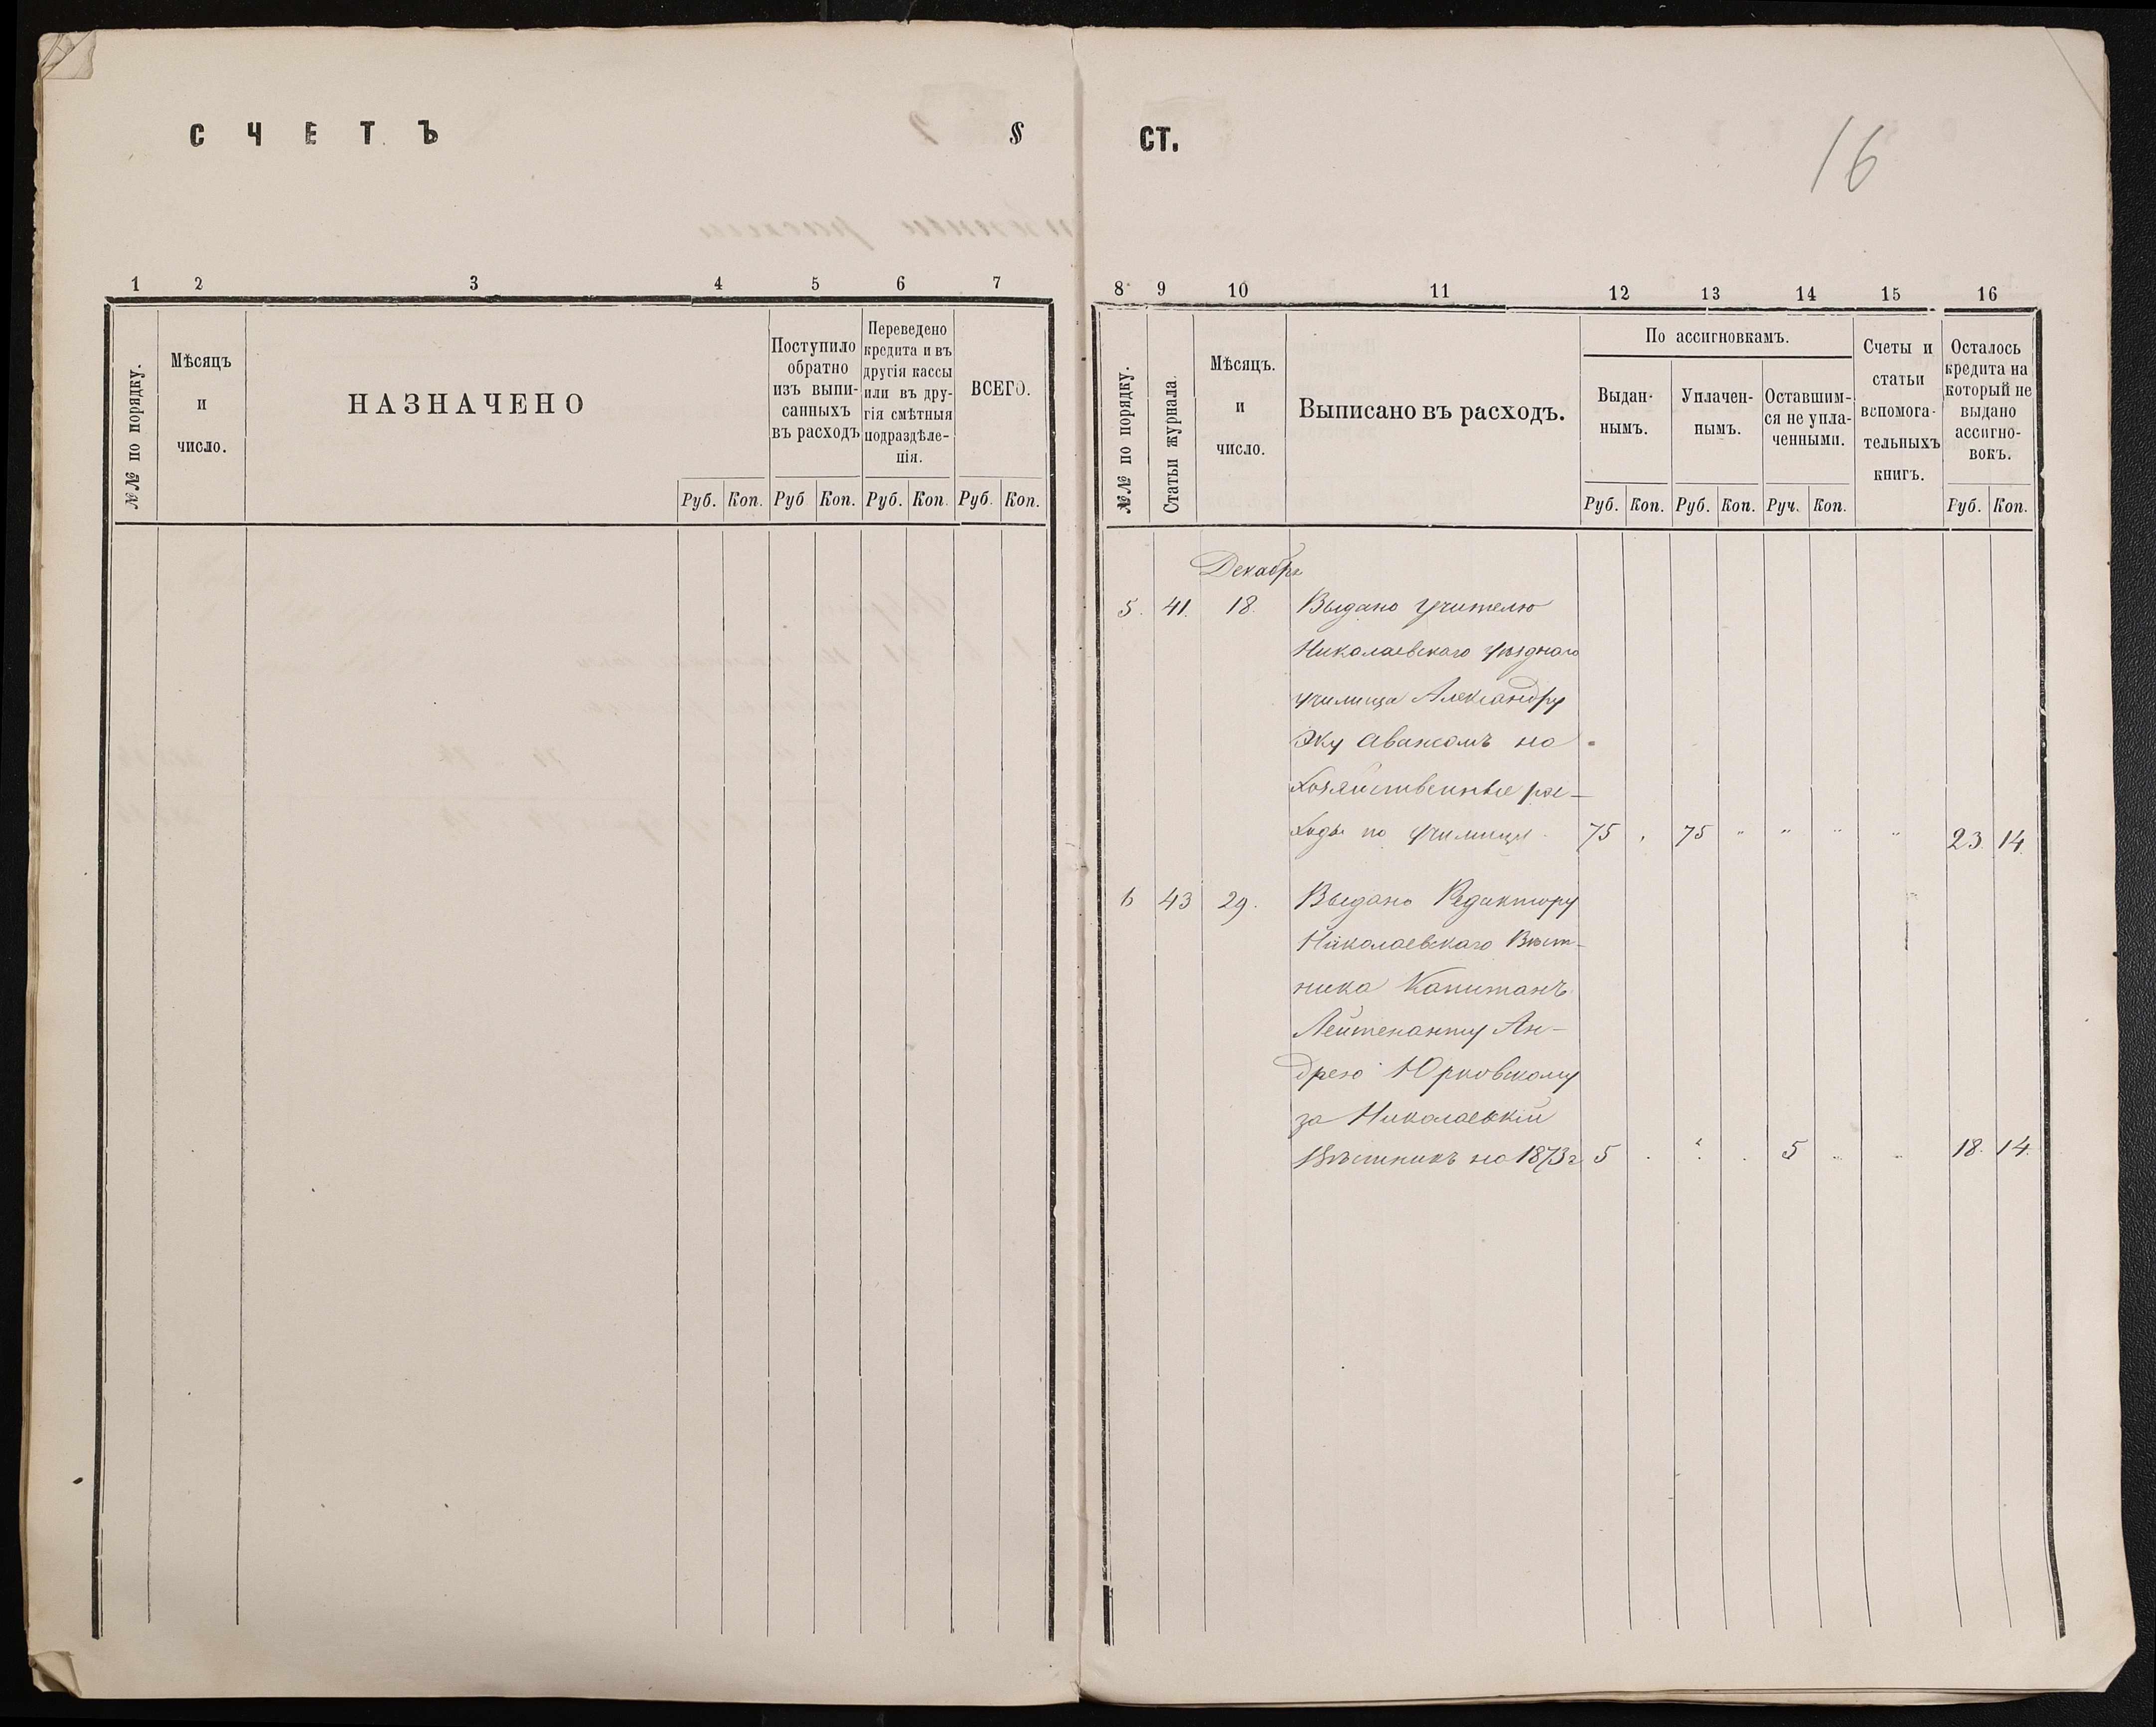 СЧЕТЪ § СТ.
16
1 2 3 4 5 6 7
№№ по порядку.
Мѣсяцъ
и
число.
НАЗНАЧЕНО
Поступило
обратно
изъ выпи-
санныхъ
въ расходъ
Переведено
кредита и въ
другія кассы
или въ дру-
гія смѣтныя
подраздѣле-
нія.
ВСЕГО.
Руб. Коп. Руб Коп. Руб. Коп. Руб. Коп.
8 9 10 11 12 13 14 15 16
№№ по порядку.
Статьи журнала.
Мѣсяцъ.
и
число.
Выписано въ расходъ.
По ассигновкамъ.
Выдан-
нымъ.
Уплачен-
нымъ.
Оставшим-
ся не упла-
ченными.
Счеты и
статьи
вспомога-
тельныхъ
книгъ.
Осталось
кредита на
который не
выдано
ассигно-
вокъ.
Руб. Коп. Руб. Коп. Руч. Коп. Руб. Коп.
Декабря
5. 41. 18. Выдано Учителю
Николаевскаго уѣзднаго
училища Александру
Эку авансомъ на
хозяйственные рас-
ходы по училищу. 75 . 75 " " " " 23. 14.
6 43 29. Выдано Редактору
Николаевскаго Вѣст-
ника Капитанъ
Лейтенанту Ан-
дрею Юрковскому
за Николаевскій
Вѣстникъ на 1873 г. 5 . " . 5 " " 18. 14.